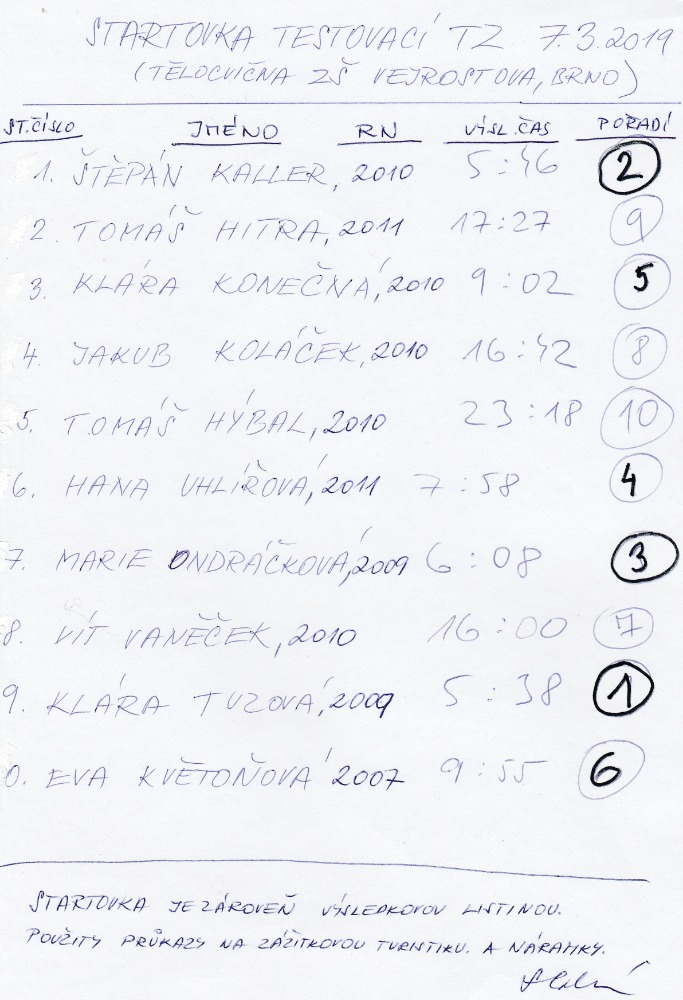 STARTOVKA TESTOVACÍ TZ 7.3.2019
(TĚLOCVIČNA ZŠ VEJROSTOVA, BRNO)
ST.ČÍSLO JMÉNO RN VÝSL.ČAS POŘADÍ
1. ŠTĚPÁN KALLER, 2010 5:46 2
2. TOMÁŠ HITRA, 2011 17:27 9
3. KLÁRA KONEČNÁ, 2010 9:02 5
4. JAKUB KOLÁČEK, 2010 16:42 8
5. TOMÁŠ HÝBAL, 2010 23:18 10
6. HANA UHLÍŘOVÁ, 2011 7:58 4
7. MARIE ONDRÁČKOVÁ, 2009 6:08 3
8. VÍT VANĚČEK, 2010 16:00 7
9. KLÁRA TUZOVÁ, 2009 5:38 1
0. EVA KVĚTOŇOVÁ 2007 9:55 6
STARTOVKA JE ZÁROVEŇ VÝSLEDKOVOU LISTINOU.
POUŽITY PRŮKAZY NA ZÁŽITKOVOU TURISTIKU. A NÁRAMKY.